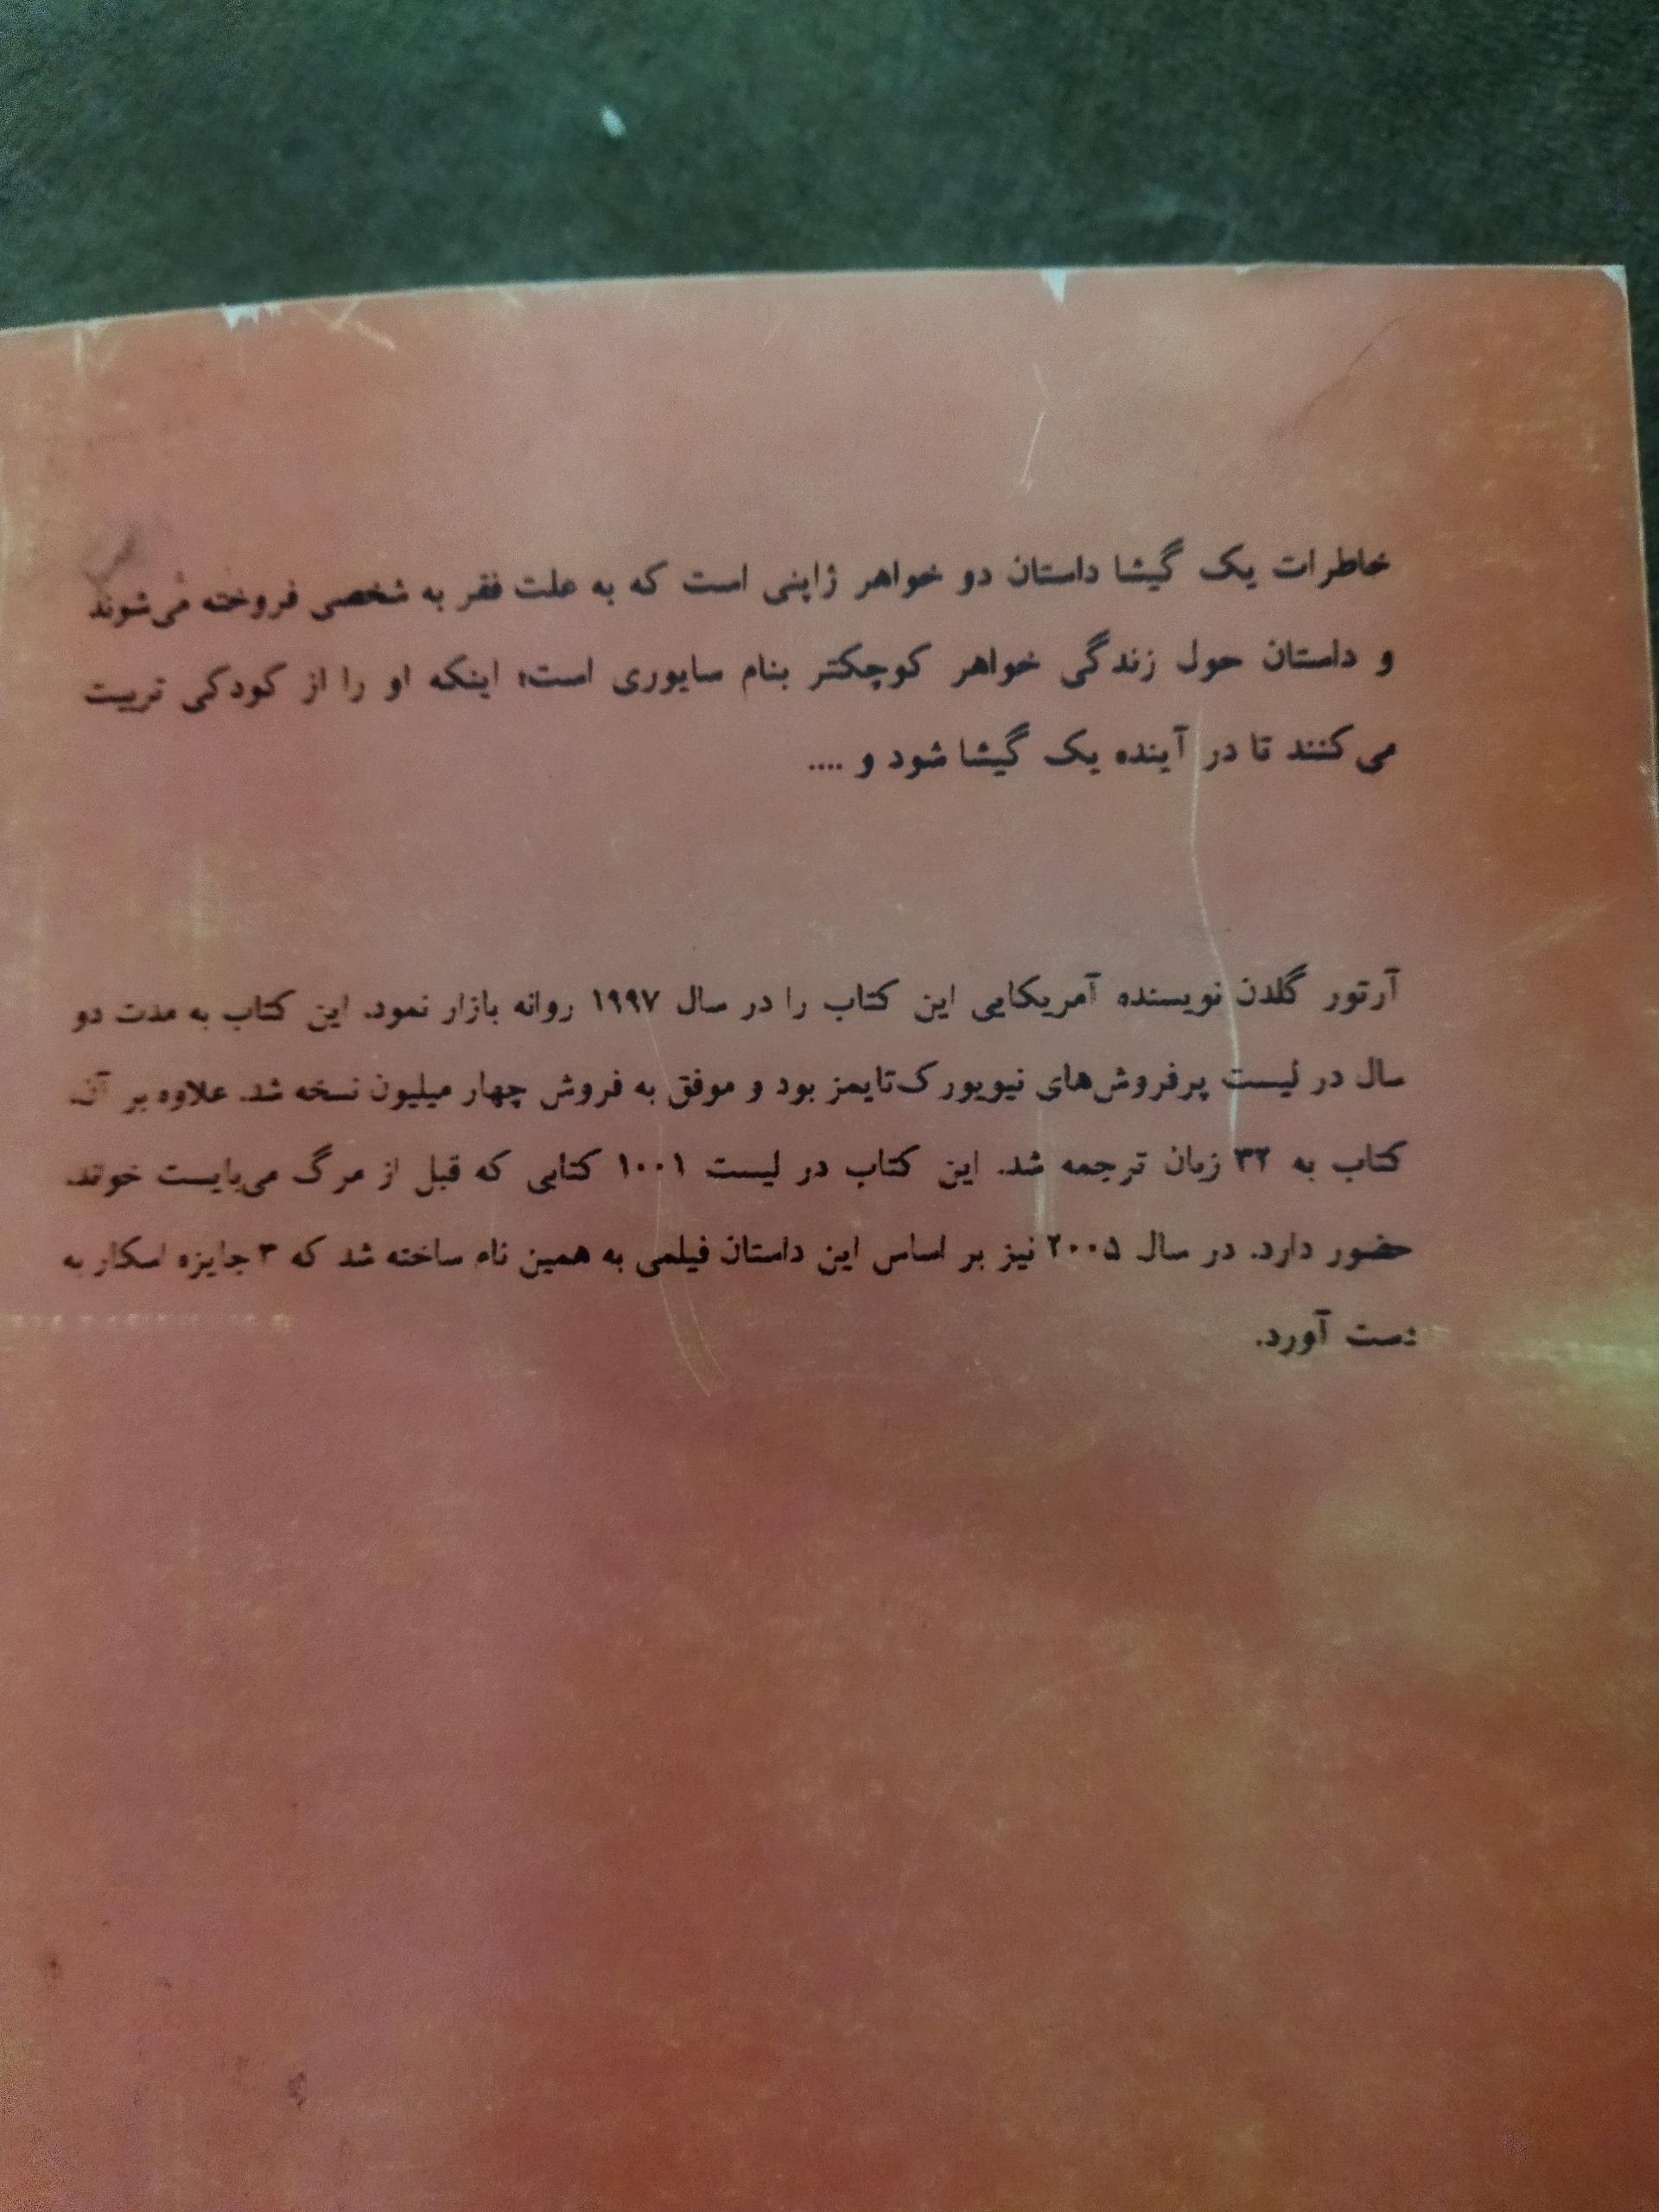 خاطرات یک گیشا داستان دو خواهر ژاپنی است که به علت فقر به شخصی فروخته می‌شوند
و داستان حول زندگی خواهر کوچکتر بنام سایوری است؛ اینکه او را از کودکی تربیت
می‌کنند تا در آینده یک گیشا شود و ....
آرتور گلدن نویسنده آمریکایی این کتاب را در سال ۱۹۹۷ روانه بازار نمود. این کتاب به مدت دو
سال در لیست پرفروش‌های نیویورک‌تایمز بود و موفق به فروش چهار میلیون نسخه شد. علاوه بر آن،
کتاب به ۳۲ زبان ترجمه شد. این کتاب در لیست ۱۰۰۱ کتابی که قبل از مرگ می‌بایست خواند،
حضور دارد. در سال ۲۰۰۵ نیز بر اساس این داستان فیلمی به همین نام ساخته شد که ۳ جایزه اسکار به
دست آورد.